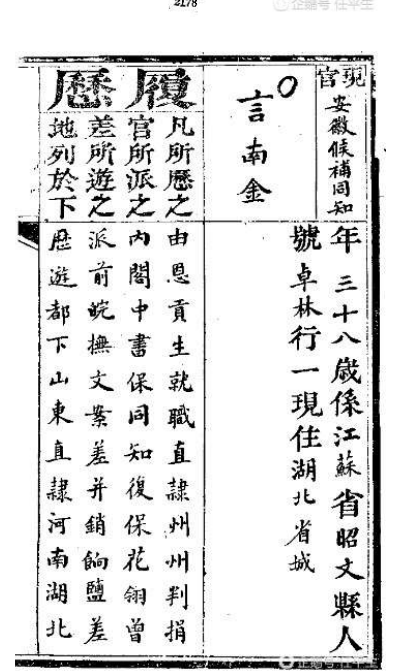 2178
企鹅号 任平生
現官
安徽候補同知
年三十八歲係江蘇省昭文縣人
號卓林行一現住湖北省城
言南金
履歷
凡所歷之
官所派之
差所遊之
地列於下
由恩貢生就職直隸州州判捐
內閣中書保同知復保花翎曾
派前皖撫文案差并銷餉鹽差
歷遊都下山東直隸河南湖北